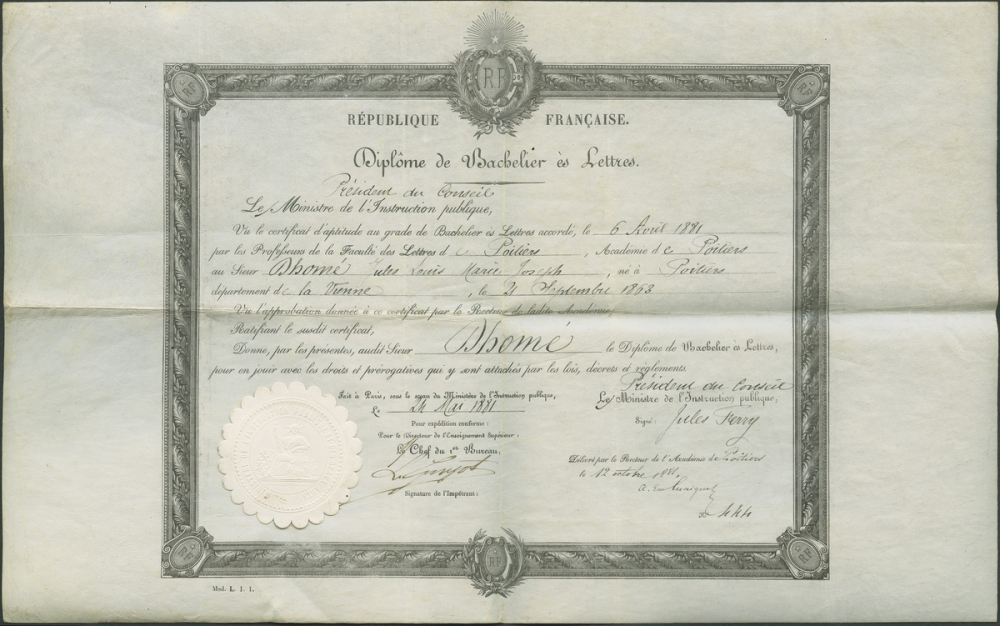 RF
RF
RF
RÉPUBLIQUE FRANÇAISE.
Diplôme de Bachelier ès Lettres.
Président du Conseil
Le Ministre de l'Instruction publique,
Vu le certificat d'aptitude au grade de Bachelier ès Lettres accordé, le 6 Avril 1881
par les Professeurs de la Faculté des Lettres de Poitiers, Académie de Poitiers
au Sieur Dhomé Jules Louis Marie Joseph, né à Poitiers
département de la Vienne, le 21 Septembre 1863
Vu l'approbation donnée à ce certificat par le Recteur de ladite Académie;
Ratifiant le susdit certificat,
Donne, par les présentes, audit Sieur Dhomé le Diplôme de Bachelier ès Lettres,
pour en jouir avec les droits et prérogatives qui y sont attachés par les lois, décrets et règlements.
Fait à Paris, sous le sceau du Ministère de l'Instruction publique,
Le 24 Mai 1881
Pour expédition conforme:
Pour le Directeur de l'Enseignement Supérieur:
Le Chef du 1er Bureau,
Signature de l'Impétrant:
Président du Conseil
Le Ministre de l'Instruction publique,
Signé: Jules Ferry
Délivré par le Recteur de l'Académie de Poitiers
le 12 octobre 1881,
RF
RF
RF
Mod. L. 1. 1.